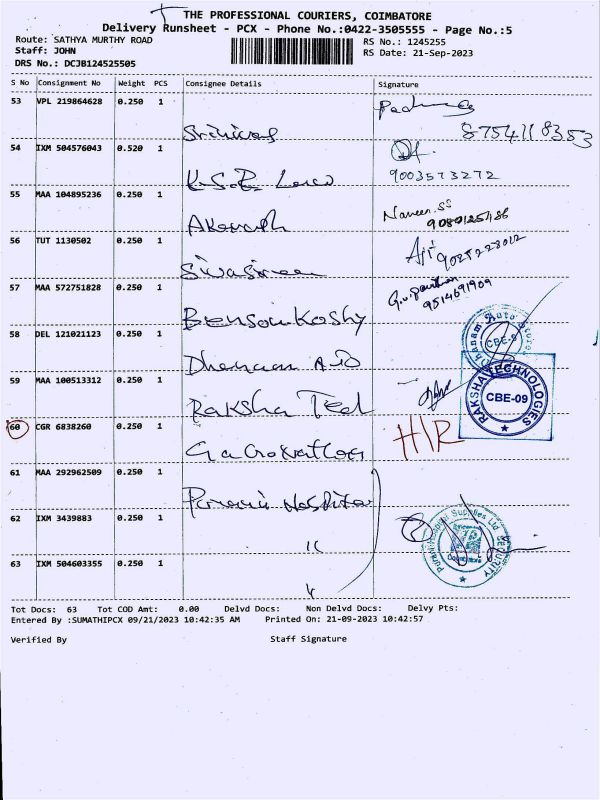 THE PROFESSIONAL COURIERS, COIMBATORE
Delivery Runsheet - PCX - Phone No.:0422-3505555 - Page No.:5
Route: SATHYA MURTHY ROAD RS No.: 1245255
Staff: JOHN RS Date: 21-Sep-2023
DRS No.: DCJB124525505
S No Consignment No Weight PCS Consignee Details Signature
53 VPL 219864628 0.250 1
Srinivas 8754118353
54 IXM 504576043 0.520 1
K.S.R. 9003573272
55 MAA 104895236 0.250 1 Naveen.SS
Akawash 9080125486
56 TUT 1130502 0.250 1
9025228022
57 MAA 572751828 0.250 1
Benson Koshy 9514691909
58 DEL 121021123 0.250 1 Dhanam Auto Store CBE-9
Dhanam Auto
59 MAA 100513312 0.250 1 RAKSHA TECHNOLOGIES CBE-09
Raksha Tech
60 CGR 6838260 0.250 1 H/R
61 MAA 292962509 0.250 1
Hospital
62 IXM 3439883 0.250 1 SECURITY
"
63 IXM 504603355 0.250 1
Tot Docs: 63 Tot COD Amt: 0.00 Delvd Docs: Non Delvd Docs: Delvy Pts:
Entered By :SUMATHIPCX 09/21/2023 10:42:35 AM Printed On: 21-09-2023 10:42:57
Verified By Staff Signature